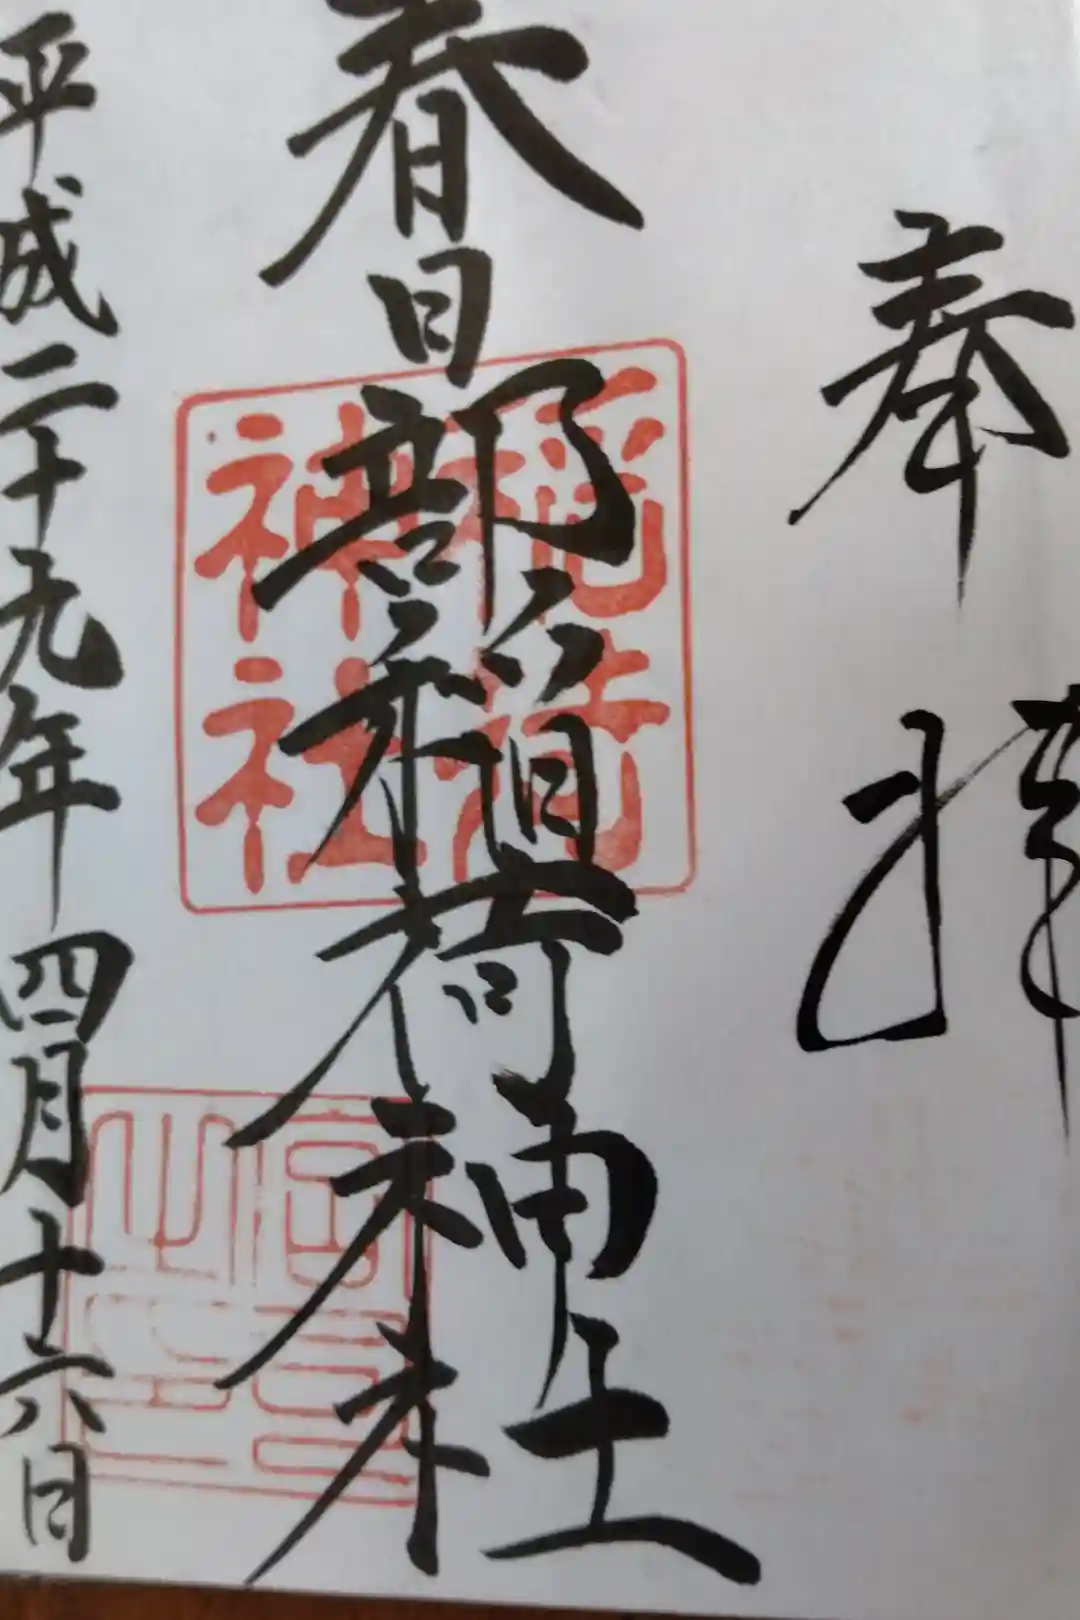 奉拝
春日部稲荷神社
平成二十九年四月十六日
稲荷
神社